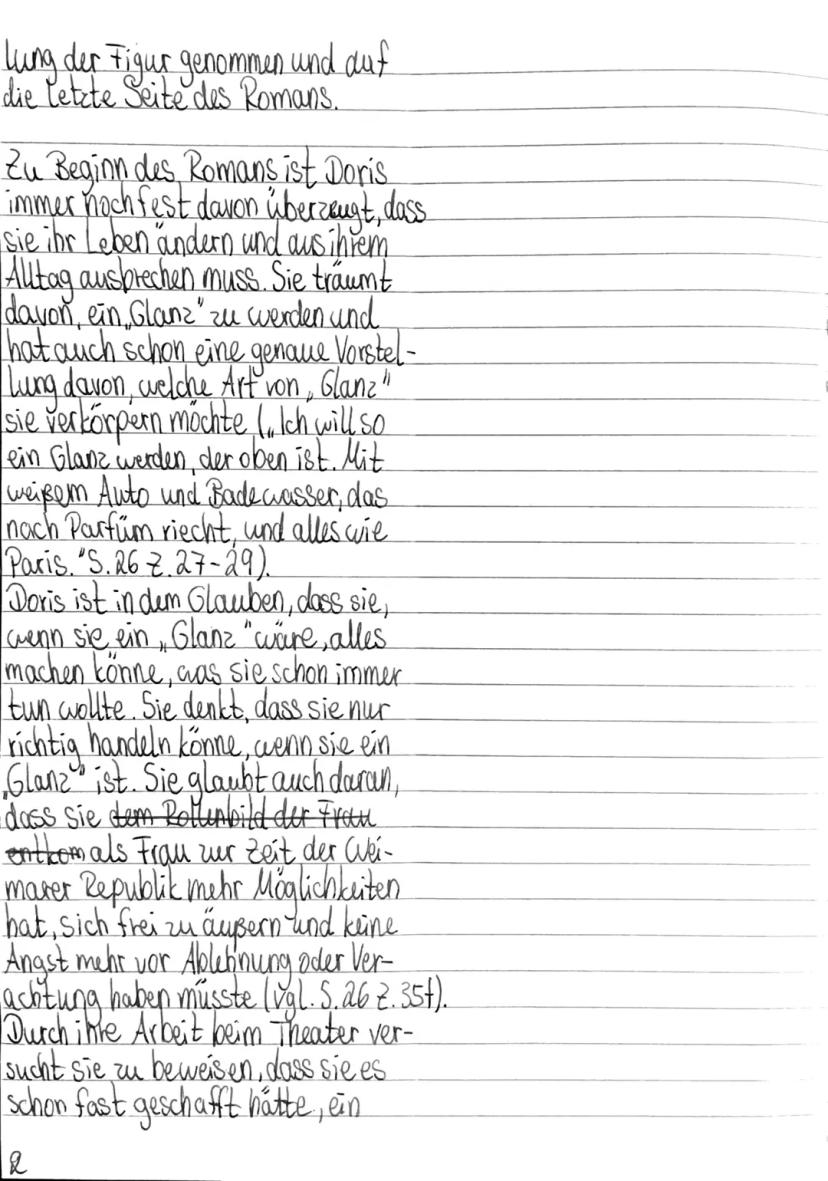 lung der Figur genommen und auf
die letzte Seite des Romans.
Zu Beginn des Romans ist Doris
immer noch fest davon überzeugt, dass
sie ihr Leben ändern und aus ihrem
Alltag ausbrechen muss. Sie träumt
davon, ein „Glanz" zu werden und
hat auch schon eine genaue Vorstel-
lung davon, welche Art von „Glanz"
sie verkörpern möchte („Ich will so
ein Glanz werden, der oben ist. Mit
weißem Auto und Badewasser, das
nach Parfüm riecht, und alles wie
Paris." S. 26 Z. 27-29).
Doris ist in dem Glauben, dass sie,
wenn sie ein „Glanz" wäre, alles
machen könne, was sie schon immer
tun wollte. Sie denkt, dass sie nur
richtig handeln könne, wenn sie ein
„Glanz" ist. Sie glaubt auch daran,
dass sie dem Rollenbild der Frau
entkom als Frau zur Zeit der Wei-
marer Republik mehr Möglichkeiten
hat, sich frei zu äußern und keine
Angst mehr vor Ablehnung oder Ver-
achtung haben müsste (vgl. S. 26 Z. 35f).
Durch ihre Arbeit beim Theater ver-
sucht sie zu beweisen, dass sie es
schon fast geschafft hätte, ein
2